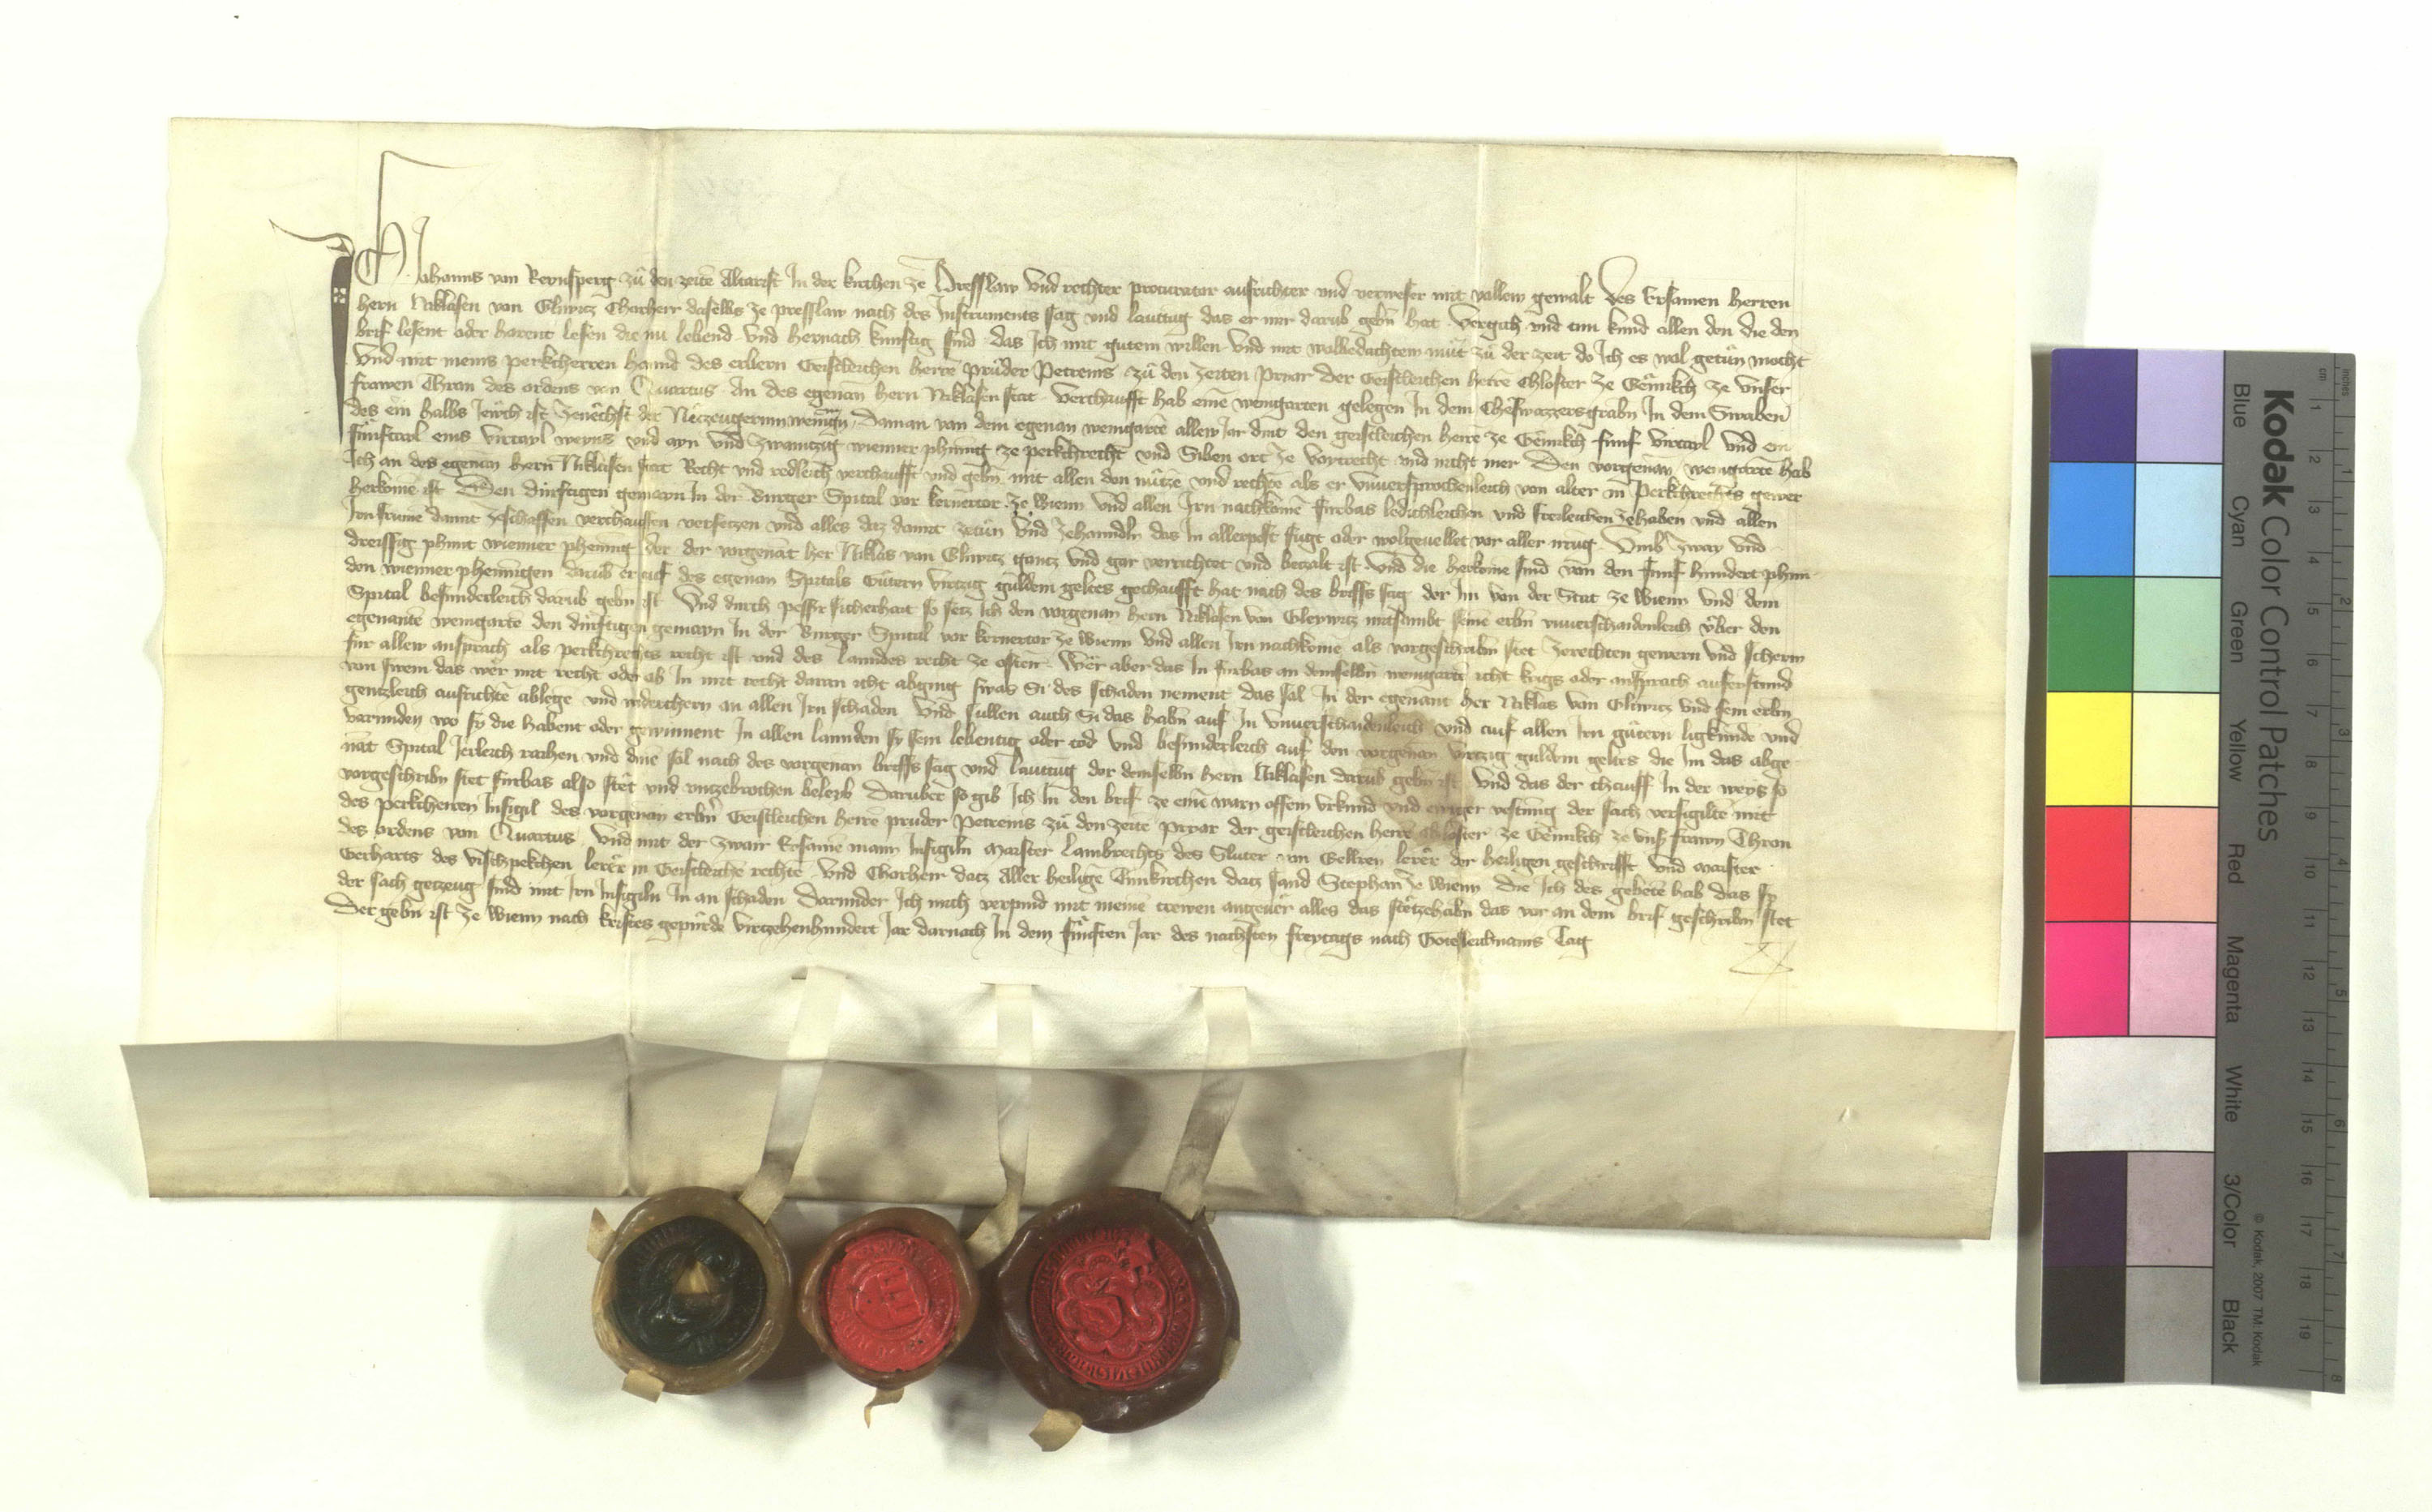 Ich Johanns von Reynsperg zu den zeitn Altarist In der kirchen ze Presslaw Vnd rechter procurator ausrichter vnd verweser mit vollem gewalt des Ersamen herren
hern Niklasen von Gliwicz Chorherr daselbs ze presslaw nach des Instruments sag vnd lautug das er mir darub gebn hat vergich vnd tun kund allen den die den
brif lesent oder horent lesen die nu lebend vnd hernach kunftig sind das Ich mit gutem willen vnd mit wolbedachtem mut zu der zeit do Ich es wol getun mocht
Vnd mit meins perkherren hannd des erbern Geistleichen herrē prüder Petreins zu den zeiten Prior der Geistleichen herrē Chloster ze Gemikch ze vnser
frawen Thron des ordens von Quartus An des egenan hern Niklasen stat verchaufft hab einē weingarten gelegen In dem Chefwazzersgrabn In dem Swaben
des ein halbs Jewch ist Zenechst der Neczeugerinn weingtn Daman von dem egenan weingartē allew Jar dint den geistleichen herrē ze Gemikch fumf virtayl vnd ein
fumftayl eins virtayl weyns vnd ayn vnd zwainczig wienner phening ze perkchrecht vnd Siben ort ze voytrecht vnd nicht mer Den vorgenan weingartē hab
Ich an des egenan hern Niklasen stat Recht vnd redleich verchaufft vnd gebn mit allen den nutzē vnd rechtē als er vnuersprochenleich von alter in Perkchrechts gewer
herkomē ist Den dürftigen gemayn In der Burger Spital vor kernertor ze wienn vnd allen Irn nachkomē furbas ledichleichen vnd freileichen zehaben vnd allen
Irn frume damit zeschaffen verchauffen versetzen vnd alles daz damit zetun vnd zehanndeln das In allerpest fugt oder wolgeuellet vor aller meug Vmb zway vnd
dreissig phunt wienner phening der der vorgenāt her Niklas von Gliwicz gantz vnd gar verrichtet vnd bezalt ist Vnd die herkomē sind von den fumf hundert phun
den wienner pheningen darub er auf des egenan Spitals Gütern virtzig guldein geltes gechaufft hat nach des briefs sag der Im von der Stat ze wienn vnd dem
Spital besunderleich darub gebn ist Vnd durch pesser sicherhait so setz Ich den vorgenan hern Niklasen von Gleywicz mitsambt seinē erbn vnuerschaidenleich vber den
egenantē weingartē den dürftigen gemayn In der Burger Spital vor kernertor ze wienn vnd allen Irn nachkomē als vorgeschribn stet Zerechten gewern vnd scherm
fur allew ansprach als perkchrechts recht ist vnd des lanndes recht ze osten Wer aber das In furbas an demselbn weingartē icht krigs oder ansprach auferstund
von swem das wer mit recht oder ob In mit recht daran icht abging swas Si des schaden nement das sol In der egenant her Niklas von Gliwicz vnd sein erbn
gentzleich ausrichtē ablegē vnd widerchern an allen Irn schaden Vnd sullen auch Si das habn auf In vnuerschaidenleich vnd auf allen Irn gutern ligkunde vnd
varunden wo sy die habent oder gewinnent In allen lannden sy sein lebentig oder tod vnd besunderleich auf den vorgenan virtzig guldein geltes die Im das abge
nāt Spital Jerleich raichen vnd dinē sol nach des vorgenan briefs sag vnd lautug der demselbn hern Niklasen darub gebn ist Vnd das der chauff In der weys so
vorgeschribn stet furbas also stet vnd vnzebrochen beleyb Daruber so gib Ich In den brif ze einē warn offem vrkund vnd ewiger vestnug der sach versigiltē mit
des perkcherren Insigil des vorgenan erbn Geistleichen herrē prüder Petreins zu den zeitē prior der geistleichen herrē chloster ze Gemikch ze vnsr frawn Thron
des ordens von Quartus Vnd mit der zwair Ersamē mann Insigiln Maister Lambrechts des Sluter von Gellren lerer der heiligen geschrifft vnd Maister
Gerharts des Vischpekchen lerer in Geistleichē rechtē vnd Chorherr datz Aller heiligē Tumkirchen datz sand Stephan ze wienn die Ich des gebetē hab das sy
der sach getzeug sind mit Irn Insigiln In an schaden Darunder Ich mich verpind mit meinē trewen angeuer alles das stetzehabn das vor an dem brif geschribn stet
Der gebn ist ze wienn nach kristes gepurde virtzehenhundert Jar darnach In dem fumften Jar des nachsten freytags nach Gotsleichnams Tag
Kodak Color Control Patches
Blue Cyan Green Yellow Red Magenta White 3/Color Black
© Kodak, 2007 TM: Kodak
inches 1 2 3 4 5 6 7 8
cm 1 2 3 4 5 6 7 8 9 10 11 12 13 14 15 16 17 18 19